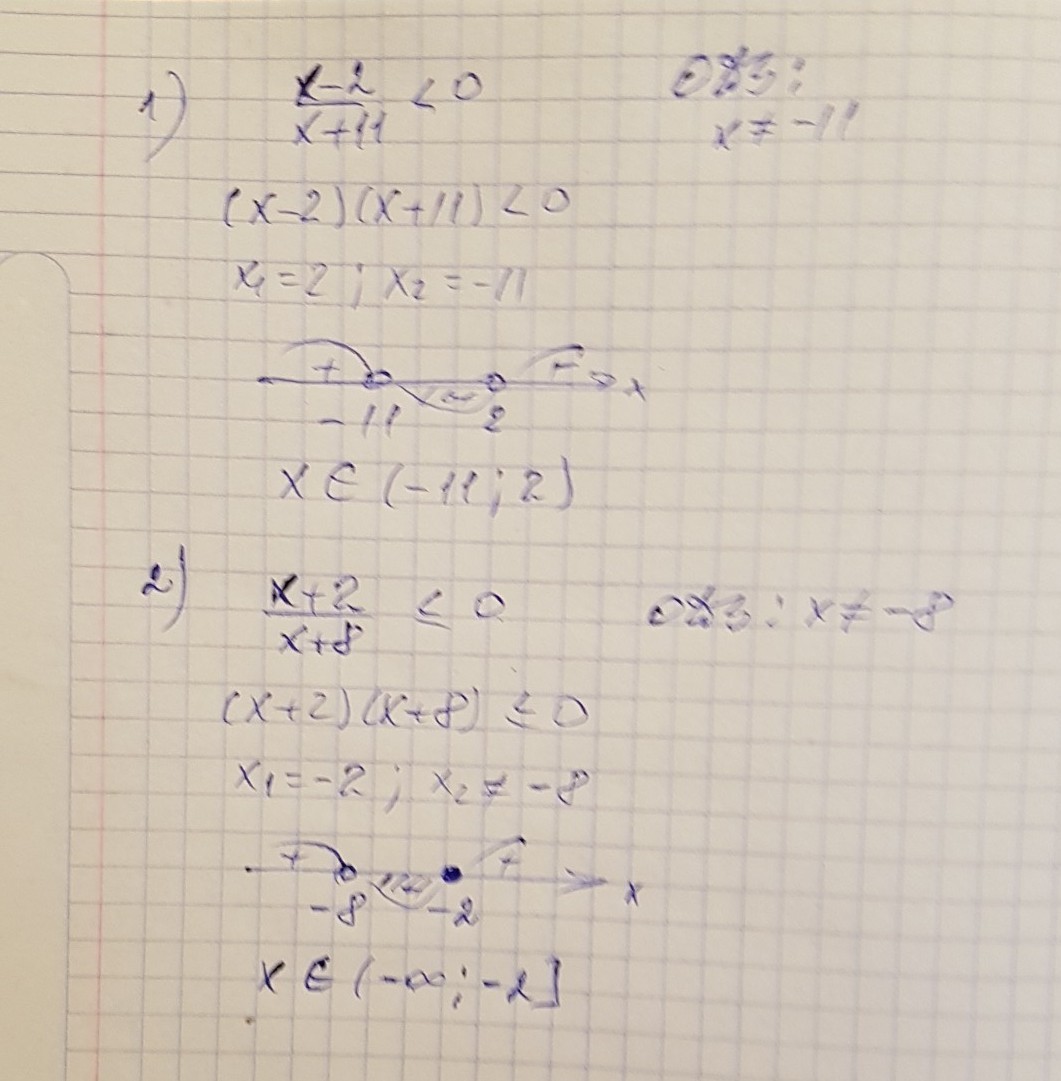 1) x-2/x+11 < 0 ОДЗ:
x ≠ -11
(x-2)(x+11) < 0
x₁=2 ; x₂ = -11
+ - + x
-11 2
x ∈ (-11; 2)
2) x+2/x+8 ≤ 0 ОДЗ: x ≠ -8
(x+2)(x+8) ≤ 0
x₁=-2 ; x₂ ≠ -8
+ - + x
-8 -2
x ∈ (-∞; -2]